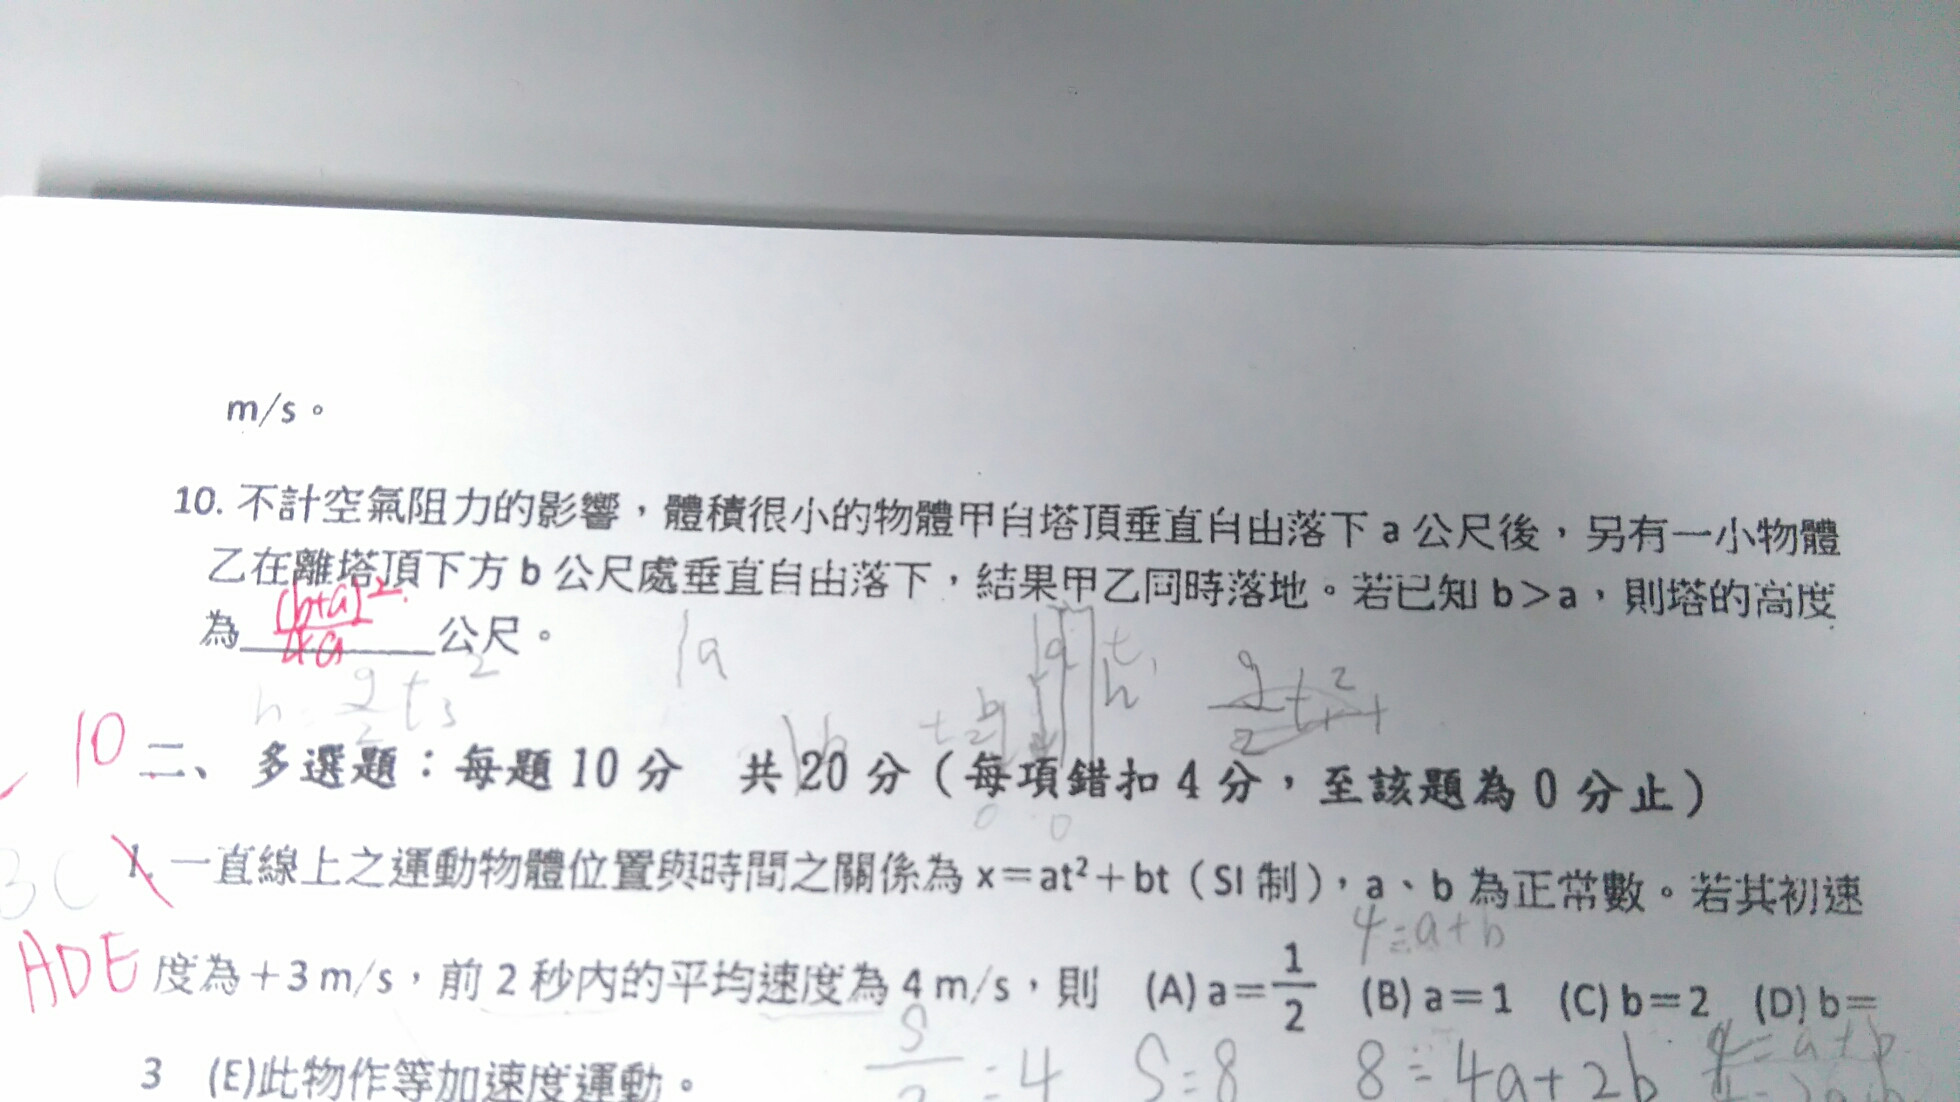 m/s。
10. 不計空氣阻力的影響，體積很小的物體甲自塔頂垂直自由落下 a 公尺後，另有一小物體
乙在離塔頂下方 b 公尺處垂直自由落下，結果甲乙同時落地。若已知 b＞a，則塔的高度
為 (b+a)²/4a 公尺。
1a
10 二、多選題：每題 10 分 共 20 分（每項錯扣 4 分，至該題為 0 分止）
1. 一直線上之運動物體位置與時間之關係為 x＝at²＋bt（SI 制），a、b 為正常數。若其初速
4=a+b
ADE 度為＋3 m/s，前 2 秒內的平均速度為 4 m/s，則 (A) a＝1/2 (B) a＝1 (C) b＝2 (D) b＝
3 (E)此物作等加速度運動。
S/2=4 S=8 8=4a+2b